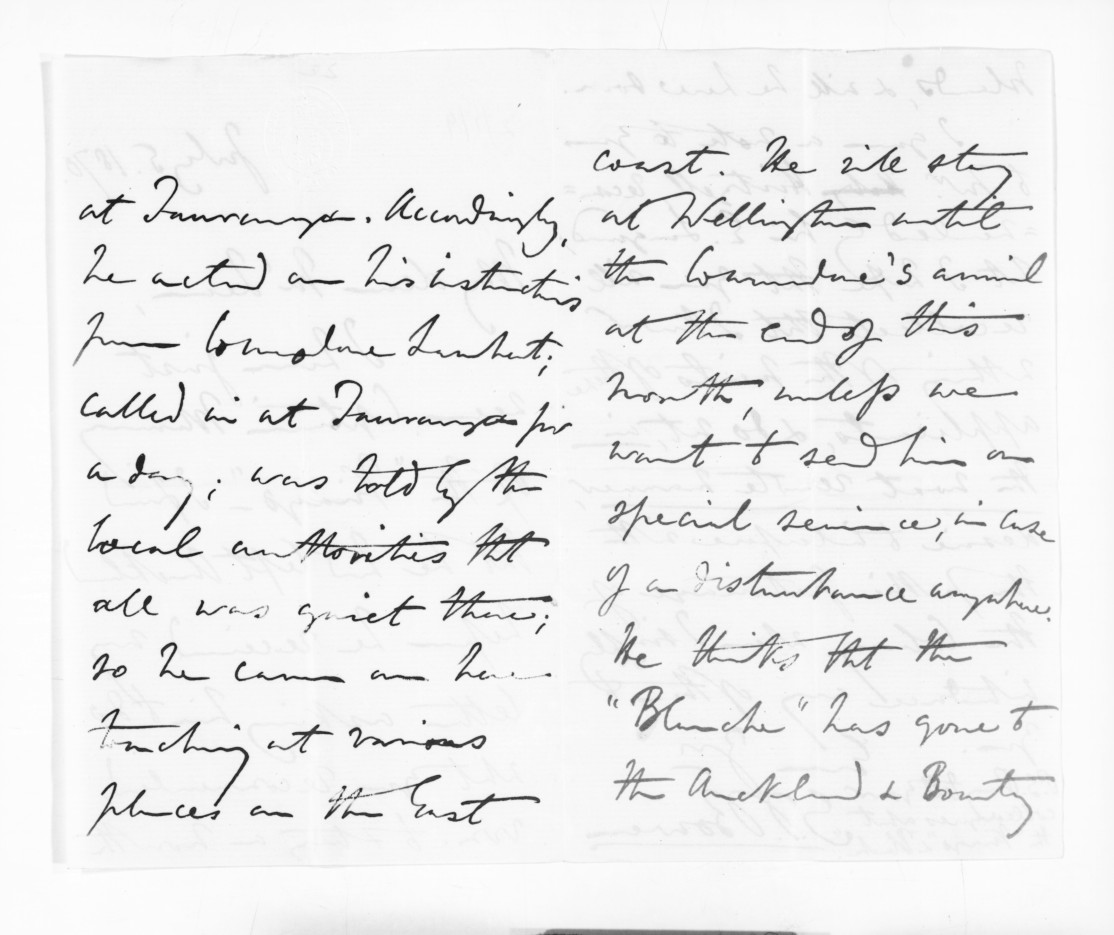 at Tauranga. Accordingly,
he acted on his instructions
from Commodore Lambert;
called in at Tauranga for
a day; was told by the
local authorities tht
all was quiet there;
so he came on here
touching at various
places on the East
coast. He will stay
at Wellington until
the Commodore's arrival
at the end of this
month, unless we
want to send him on
special service, in case
of a disturbance anywhere.
He thinks tht the
"Blanche" has gone to
the Auckland & Bounty